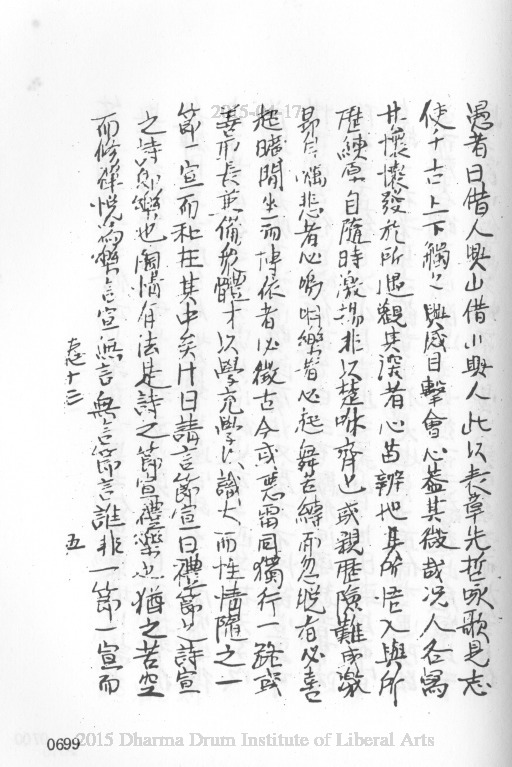 愚者曰借人與山借川與人此以表章先哲詠歌見志
使千古上下觸之興感目擊會心蓋其微哉況人各寫
其懷懷發於所遇觀其深者心苗辨地其所悟入與所
歷練原自隨時激揚非以楚咻齊也或親歷險難或激
昂負 悲者心鳴咽樂者必起舞古縛而忽脫者必喜
起曠閒坐而博依者必徵古今或惡雷同獨行一路或
善所長兼備眾體才以學充學以識大而性情隨之一
節一宣而和在其中矣什曰請言節宣曰禮節之詩宣
之詩即樂也陶情有法是詩之節宣禮樂也猶之苦空
而修禪悅為樂言宣無言無言節言誰非一節一宣而
志十三 五
2015-04-17
0699
2015 Dharma Drum Institute of Liberal Arts